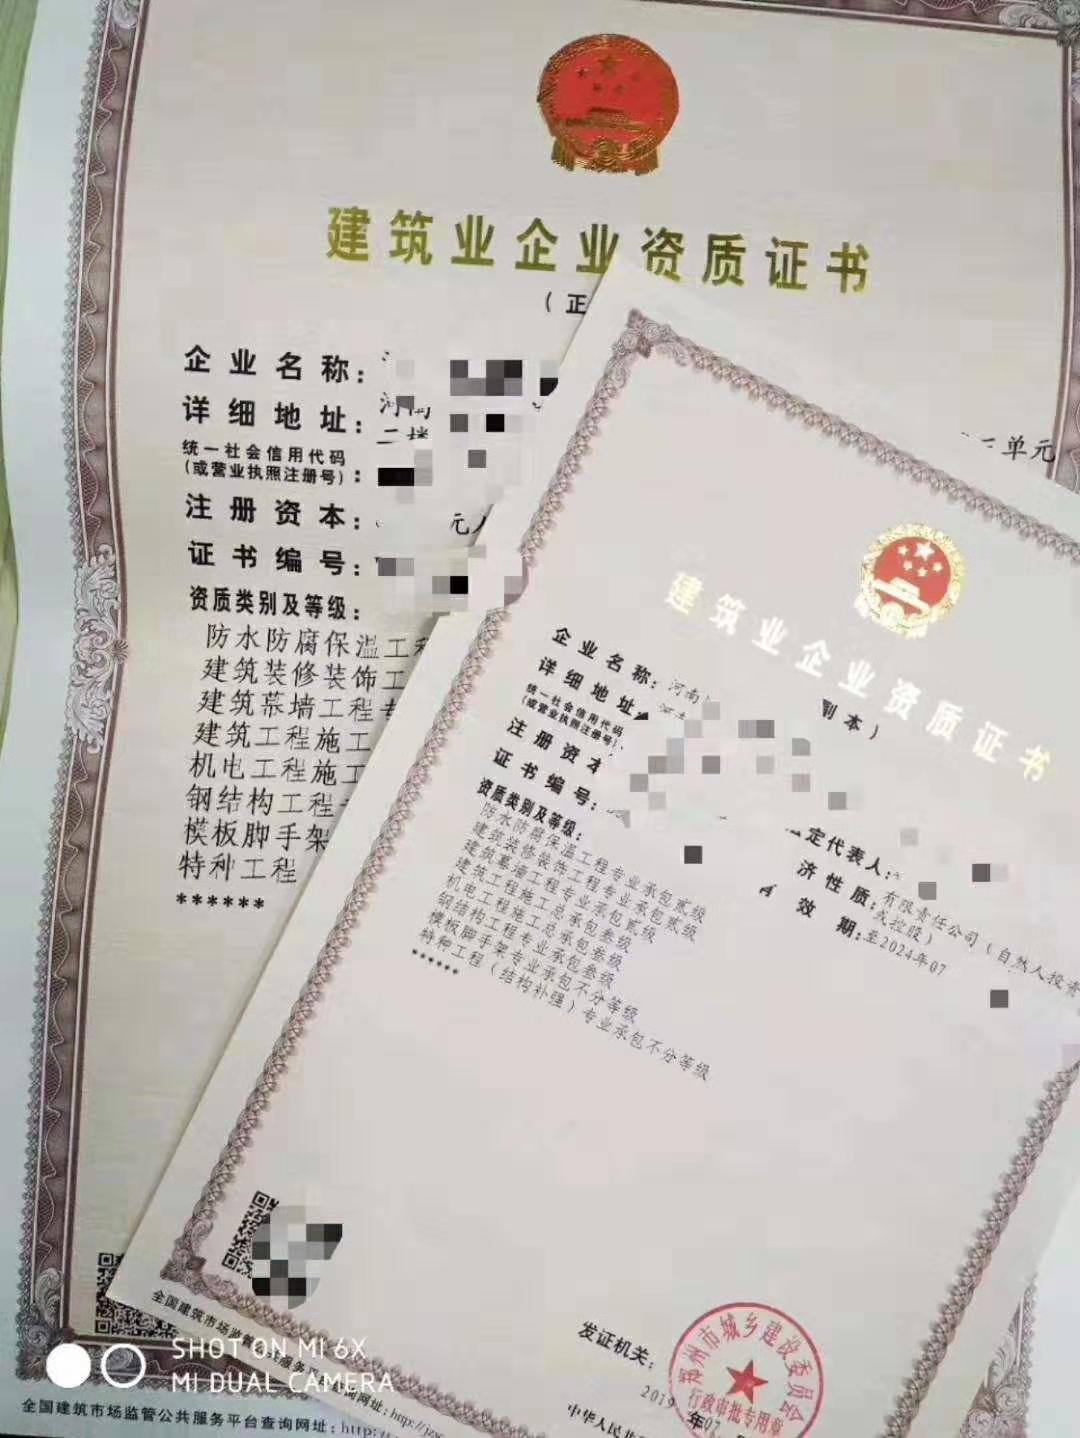 建筑业企业资质证书
（正
企业名称：
详细地址：
二单元
统一社会信用代码
（或营业执照注册号）：
注册资本：
元人
证书编号：
资质类别及等级：
防水防腐保温工程
建筑装修装饰工
建筑幕墙工程专
建筑工程施工
机电工程施工
钢结构工程
模板脚手架
特种工程
******
建筑业企业资质证书
副本）
企业名称：河南
详细地址
统一社会信用代码
（或营业执照注册号）：
注册资本
证书编号：
定代表人：
济性质：有限责任公司（自然人投资
或控股）
有效期：至2024年07
资质类别及等级：
防水防腐保温工程专业承包贰级
建筑装修装饰工程专业承包贰级
建筑幕墙工程专业承包贰级
建筑工程施工总承包叁级
机电工程施工总承包叁级
钢结构工程专业承包叁级
模板脚手架专业承包不分等级
特种工程（结构补强）专业承包不分等级
******
发证机关：
郑州市城乡建设委员会
行政审批专用章
2019年07
中华人民共
全国建筑市场监管公共服务平台查询网址：http://jzs
SHOT ON MI 6X
MI DUAL CAMERA
全国建筑市场监管公共服务平台查询网址：http: